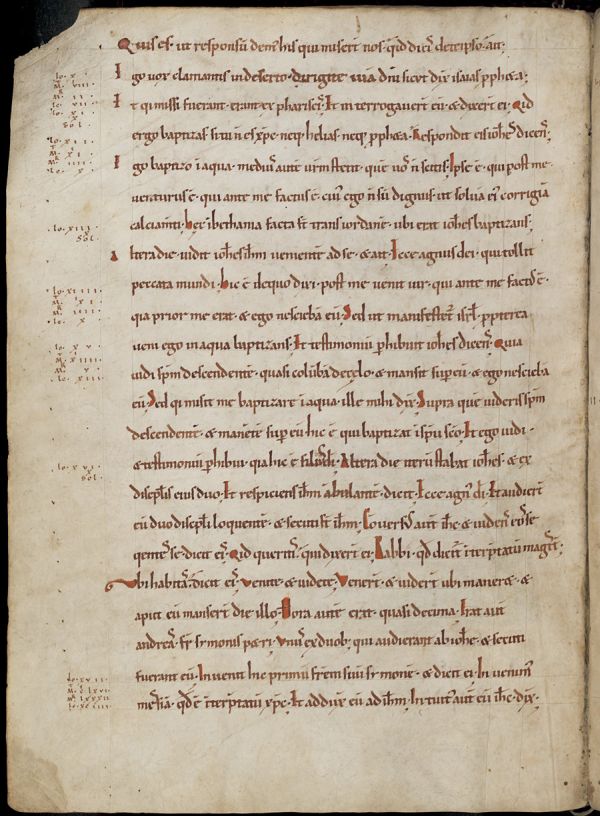 Quis es· ut responsū dem̄ his qui miserī nos· qid dicis de te ipso· ait·
Ego vox clamantis in deserto· dirigite uia dn̄i sicut dix isaias ꝓph&a·
Et qi missi fuerant· erant ex phariseis· Et interrogauer̄t eū· & dixer̄t ei· Qid
ergo baptizas si tu n̄ es xp̄c· neq; helias· neq; ꝓph&a· Respondit eis ioh̄s dicens·
Ego baptizo ī aqua· mediꝰ autē urm̄ stetit· que uos n̄ scitis· Ipse ē· qui post me
uenturus ē· qui ante me factus ē· cuiꝰ ego n̄ sū dignus· ut soluā eiꝰ corrigiā
calciamti· hec ī bethania facta st̄ trans iordanē· ubi erat ioh̄es baptizans·
Altera die· uidit ioh̄es ih̄m uenientē ad se· & ait· Ecce agnus dei· qui tollit
peccata mundi· hic ē de quo dixi· post me uenit uir· qui ante me factꝰ ē·
qia prior me erat· & ego nesciebā eū· Sed ut manifestet̄ isrl̄· ꝓpterea
ueni ego in aqua baptizans· Et testimoniū phibuit ioh̄es dicens· Quia
uidi sp̄m descendentē· quasi colūbā de cęlo· & mansit sup eū· & ego nesciebā
eū· Sed qi misit me baptizare ī aqua· ille mihi dix· Supra quē uideris sp̄m
descendentē· & manētē sup eū hic ē qui baptizat ī spū scō· Et ego uidi·
& testimoniū phibui· qia hic ē filiꝰ di· Altera die iterū stabat ioh̄es· & ex
discipl̄is eius duo· Et respiciens ih̄m ābulantē· dicit· Ecce agnꝰ di· Et audierī
eū duo discipl̄i loquentē· & secuti st̄ ih̄m· Conuersꝰ autē ih̄c & uidens eos se
qentes se· dicit eis· Qid queritis· qui dixerī ei· Rabbi· qd̄ dicit̄ īterptatū magist̄·
Ubi habitas· dicit eis· uenite & uidete· Venerī· & uiderī ubi maner&· &
aput eū manserī die illo· hora autē erat· quasi decima· Erat aut
andreas· fr̄ symonis p&ri· unꝰ ex duobꝰ· qui audierant ab ioh̄e· & secuti
fuerant eū· Inuenit hic primū fr̄em suū symonē· & dicit ei· Inuenimꝰ
messiā· qd̄ ē īterptatū xp̄c· Et addux eū ad ih̄m· Intuitꝰ autē eū ih̄c· dix·